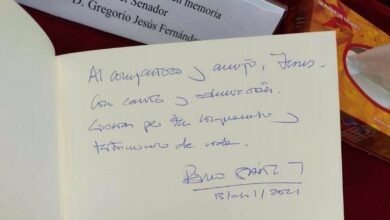 n memoria
Senador
D. Gregorio Jesús Fernández
Al compañero y amigo, Jesús.
Con cariño y admiración.
Gracias por tu compromiso y
testimonio de vida.